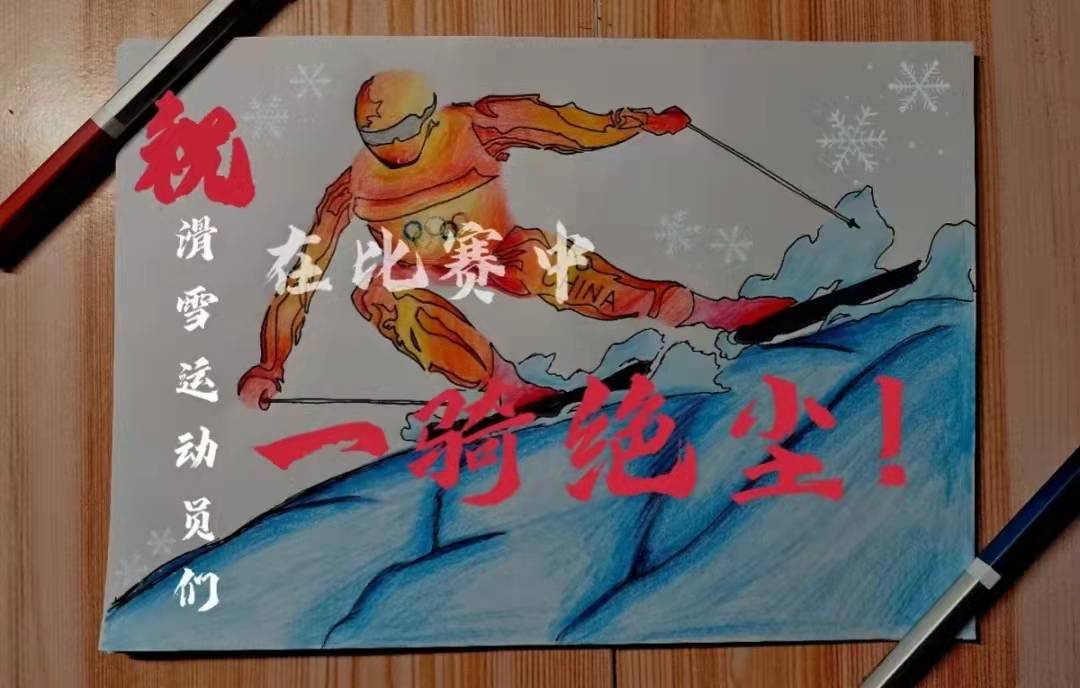 祝
滑雪运动员们
在比赛中
INA
一骑绝尘!